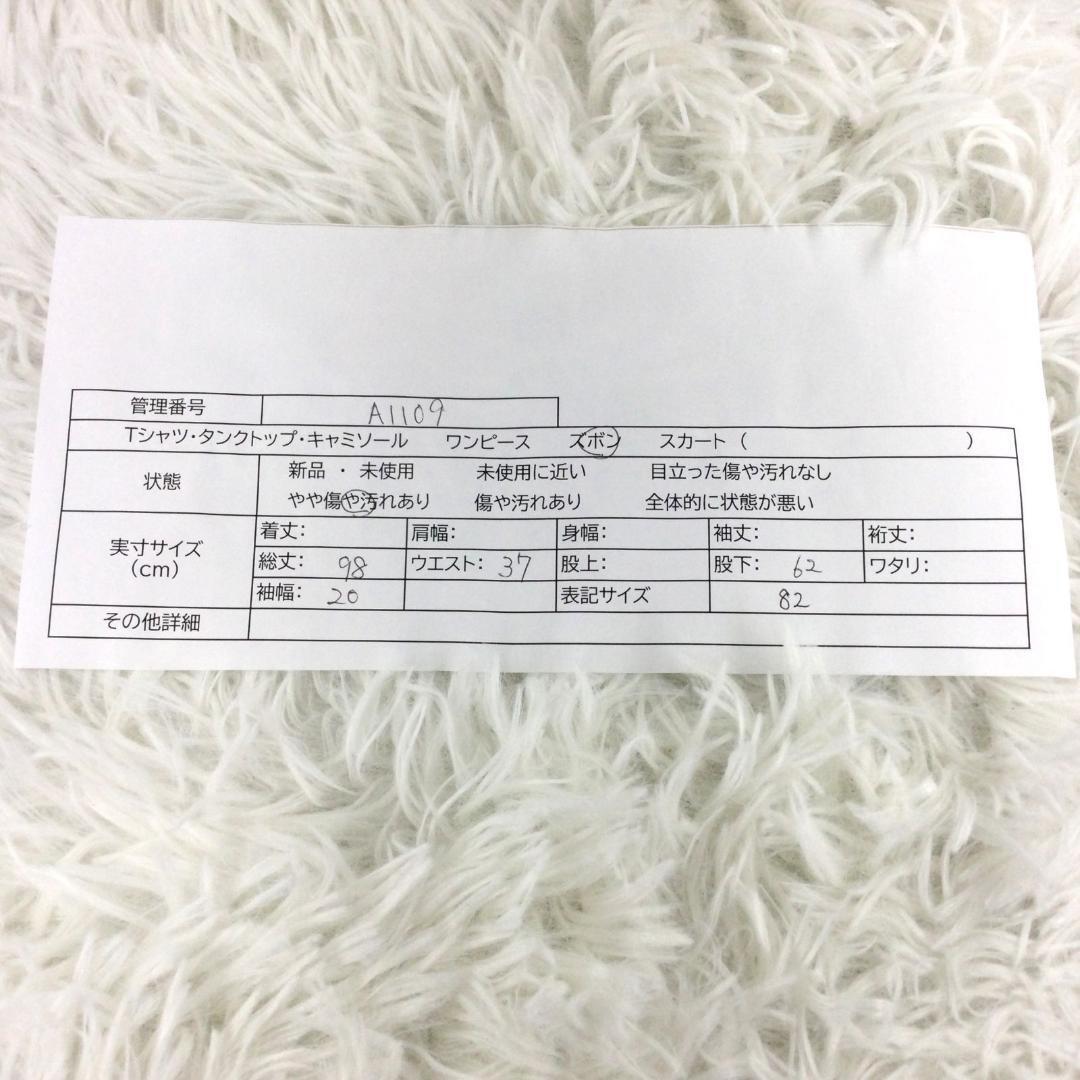 管理番号 A1109
Tシャツ・タンクトップ・キャミソール ワンピース ズボン スカート ( )
状態 新品 ・ 未使用 未使用に近い 目立った傷や汚れなし
やや傷や汚れあり 傷や汚れあり 全体的に状態が悪い
実寸サイズ (cm) 着丈: 肩幅: 身幅: 袖丈: 裄丈:
総丈: 98 ウエスト: 37 股上: 股下: 62 ワタリ:
袖幅: 20 表記サイズ 82
その他詳細